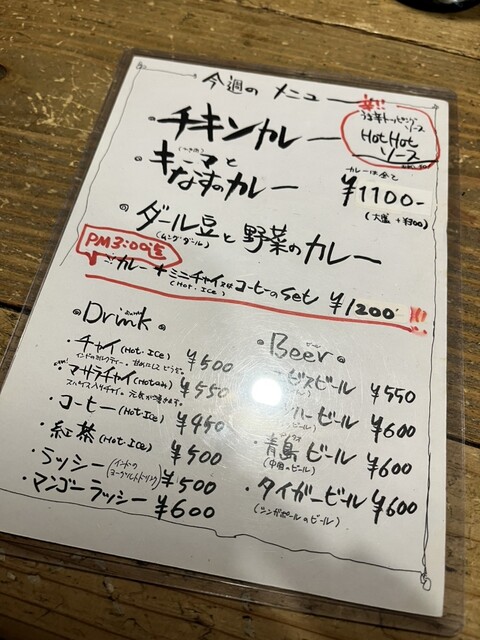 今週のメニュー
辛!!
トッピング
ソース
Hot Hot
ソース
・チキンカレー
・キーマと
なすのカレー
カレーは全て
¥1100-
(大盛 +¥300)
ダール豆と野菜のカレー
(ムング・ダール)
PM3:00迄
カレー + ミニチャイ又はコーヒーのSet ¥1200 !!!
(Hot・Ice)
Drink
・チャイ (Hot・Ice) ¥500
インドのミルクティー。
・マサラチャイ (Hotのみ) ¥550
スパイス入りチャイ。元気が湧きます。
・コーヒー (Hot・Ice) ¥450
・紅茶 (Hot・Ice) ¥500
・ラッシー (インドのヨーグルトドリンク) ¥500
・マンゴーラッシー ¥600
Beer
ビール
ビスビール ¥550
ビール ¥600
・青島ビール ¥600
(中国のビール)
・タイガービール ¥600
(シンガポールのビール)